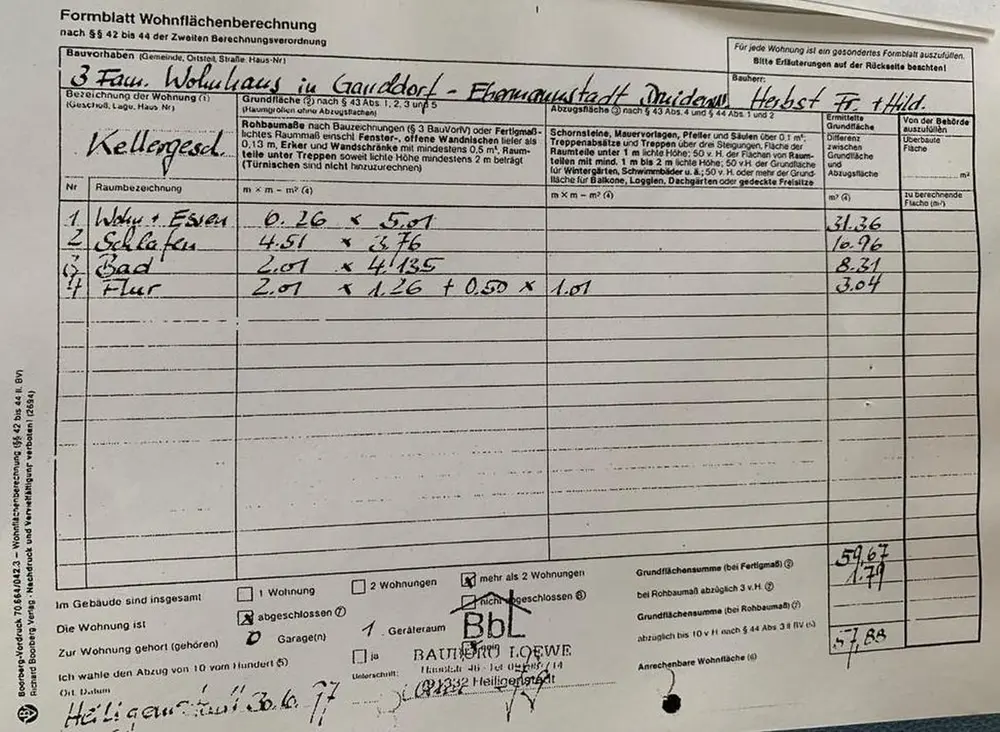 Formblatt Wohnflächenberechnung
nach §§ 42 bis 44 der Zweiten Berechnungsverordnung
Für jede Wohnung ist ein gesondertes Formblatt auszufüllen.
Bitte Erläuterungen auf der Rückseite beachten!
Bauvorhaben (Gemeinde, Ortsteil, Straße, Haus-Nr)
Bauherr:
3 Fam. Wohnhaus in Gasseldorf - Ebermannstadt Herbst Fr. + Hild.
Bezeichnung der Wohnung (1)
(Geschoß, Lage, Haus Nr)
Kellergesch.
Grundfläche (2) nach § 43 Abs. 1, 2, 3 und 5
(Raumgrößen ohne Abzugsflächen)
Rohbaumaße nach Bauzeichnungen (§ 3 BauVorlV) oder Fertigmaß-
lichtes Raummaß einschl Fenster-, offene Wandnischen tiefer als
0,13 m, Erker und Wandschränke mit mindestens 0,5 m², Raum-
teile unter Treppen soweit lichte Höhe mindestens 2 m beträgt
(Türnischen sind nicht hinzuzurechnen)
Abzugsfläche (3) nach § 43 Abs. 4 und § 44 Abs. 1 und 2
Schornsteine, Mauervorlagen, Pfeiler und Säulen über 0,1 m²,
Treppenabsätze und Treppen über drei Steigungen, Fläche der
Raumteile unter 1 m lichte Höhe; 50 v. H. der Flächen von Raum-
teilen mit mind. 1 m bis 2 m lichte Höhe; 50 v.H. der Grundfläche
für Wintergärten, Schwimmbäder u. ä.; 50 v. H. oder mehr der Grund-
fläche für Balkone, Loggien, Dachgärten oder gedeckte Freisitze
Ermittelte
Grundfläche
Differenz
zwischen
Grundfläche
und
Abzugsfläche
Von der Behörde
auszufüllen
überbaute
Fläche
m²
Nr Raumbezeichnung m × m – m² (4) m × m – m² (4) m² (4) zu berechnende
Fläche (m²)
1 Wohn + Essen 6.26 × 5.01 31.36
2 Schlafen 4.51 × 3.76 16.96
3 Bad 2.01 × 4.135 8.31
4 Flur 2.01 × 1.26 + 0.50 × 1.01 3.04
Im Gebäude sind insgesamt 1 Wohnung 2 Wohnungen mehr als 2 Wohnungen
Die Wohnung ist abgeschlossen (7) nicht abgeschlossen (8)
Zur Wohnung gehört (gehören) 0 Garage(n) 1 Geräteraum
Ich wähle den Abzug von 10 vom Hundert (5) ja
Grundflächensumme (bei Fertigmaß) (2) 59,67
bei Rohbaumaß abzüglich 3 v.H. (2) 1.79
Grundflächensumme (bei Rohbaumaß) (2)
abzüglich bis 10 v H nach § 44 Abs 3 II BV (5)
Anrechenbare Wohnfläche (6) 57,88
BbL
BAUBÜRO LOEWE
91332 Heiligenstadt
Ort, Datum
Unterschrift:
Heiligenstadt 30.6.97
Boorberg-Vordruck 70.664/042.3 – Wohnflächenberechnung (§§ 42 bis 44 II. BV)
Richard Boorberg Verlag · Nachdruck und Vervielfältigung verboten! (2694)